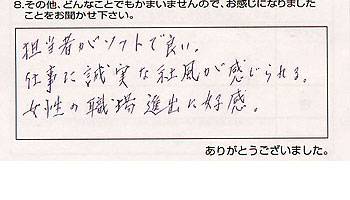 8.その他、どんなことでもかまいませんので、お感じになりました
ことをお聞かせ下さい。
担当者がソフトで良い。
仕事に誠実な社風が感じられる。
女性の職場進出に好感。
ありがとうございました。